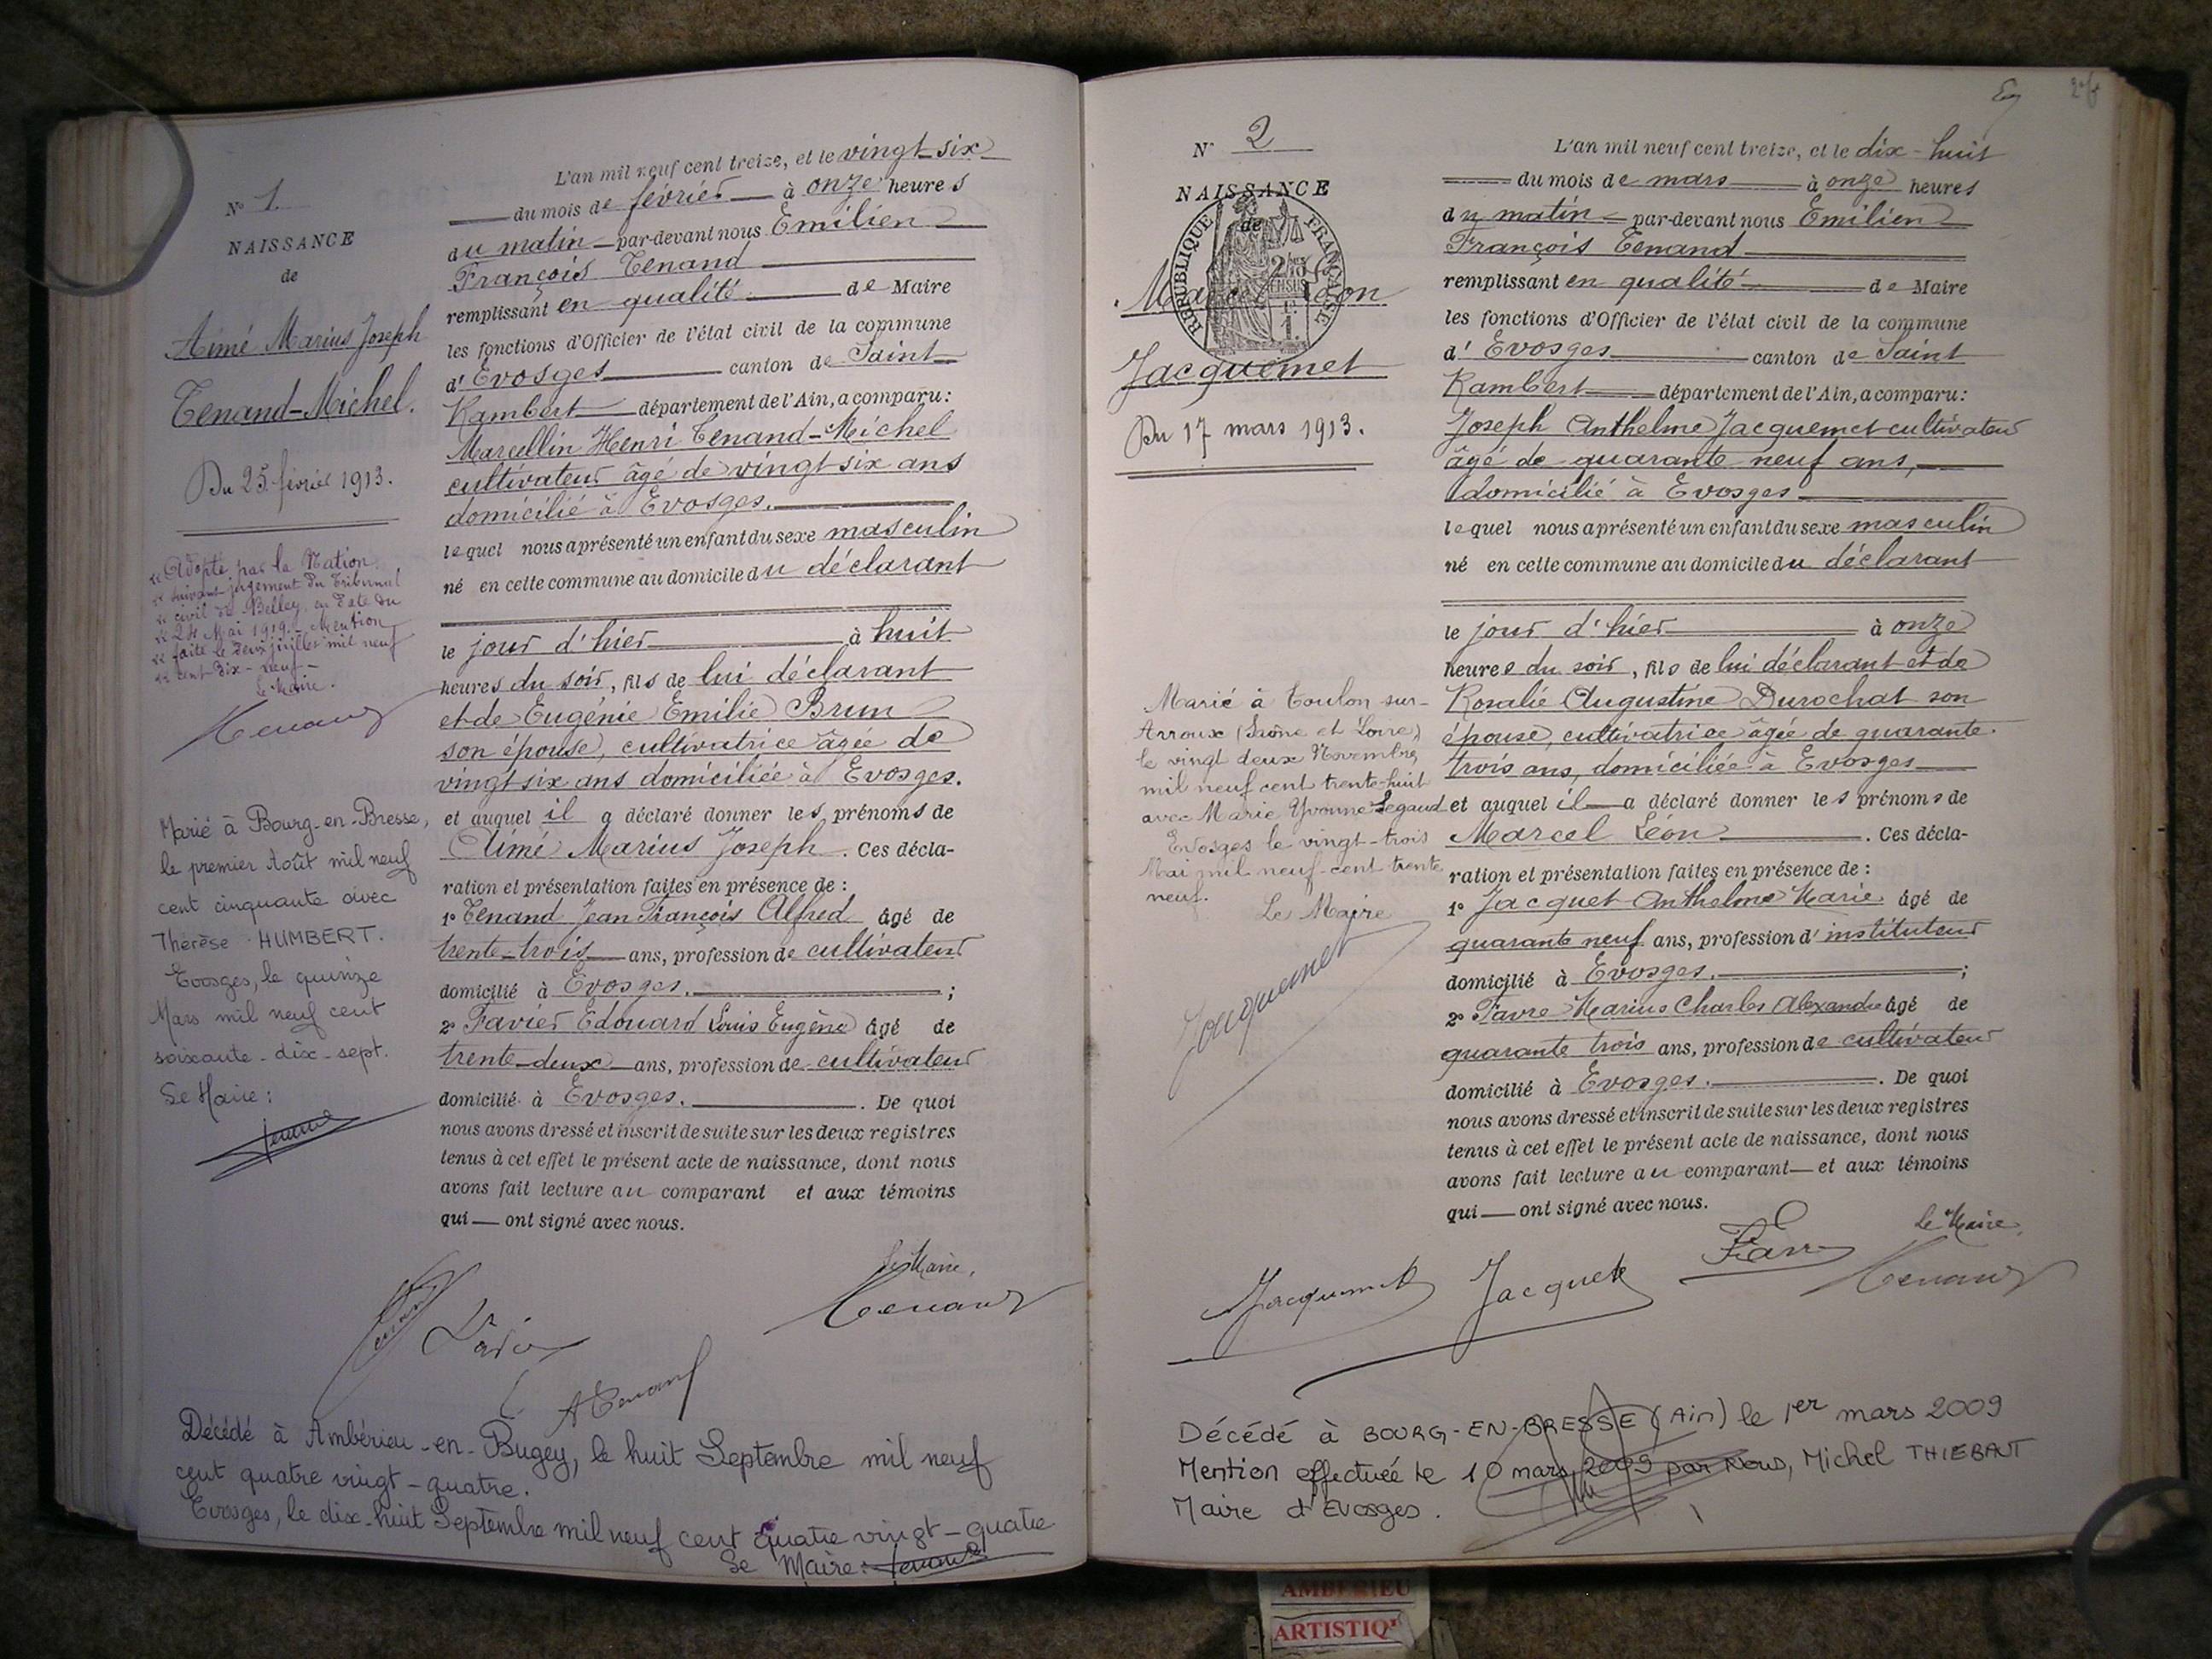 N° 1.
NAISSANCE
de
Aimé Marius Joseph
Tenand-Michel.
Du 25 février 1913.
Adopté par la Nation
suivant jugement du Tribunal
civil de Belley en date du
24 Mai 1919. - Mention
faite le deux juillet mil neuf
cent dix-neuf -
Le Maire.
Tenand
Marié à Bourg-en-Bresse,
le premier Août mil neuf
cent cinquante avec
Thérèse HUMBERT.
Evosges, le quinze
Mars mil neuf cent
soixante-dix-sept.
Le Maire :
L'an mil neuf cent treize, et le vingt-six
du mois de février à onze heures
du matin par-devant nous Emilien
François Tenand
remplissant en qualité de Maire
les fonctions d'Officier de l'état civil de la commune
d' Evosges canton de Saint-
Rambert département de l'Ain, a comparu :
Marcellin Henri Tenand-Michel
cultivateur âgé de vingt six ans
domicilié à Evosges.
lequel nous a présenté un enfant du sexe masculin
né en cette commune au domicile du déclarant
le jour d'hier à huit
heures du soir, fils de lui déclarant
et de Eugénie Emilie Brun
son épouse, cultivatrice âgée de
vingt six ans domiciliée à Evosges.
et auquel il a déclaré donner les prénoms de
Aimé Marius Joseph . Ces décla-
ration et présentation faites en présence de :
1° Tenand Jean François Alfred âgé de
trente-trois ans, profession de cultivateur
domicilié à Evosges. ;
2° Favier Edouard Louis Eugène âgé de
trente-deux ans, profession de cultivateur
domicilié à Evosges. . De quoi
nous avons dressé et inscrit de suite sur les deux registres
tenus à cet effet le présent acte de naissance, dont nous
avons fait lecture au comparant et aux témoins
qui ont signé avec nous.
Le Maire,
Tenand
A Tenand
Décédé à Ambérieu-en-Bugey, le huit Septembre mil neuf
cent quatre vingt-quatre.
Evosges, le dix-huit Septembre mil neuf cent quatre vingt-quatre
Le Maire :
N° 2
NAISSANCE
de
RÉPUBLIQUE FRANÇAISE
Jacquemet
Du 17 mars 1913.
Marié à Toulon sur-
Arroux (Saône et Loire)
le vingt deux Novembre
mil neuf cent trente-huit
avec Marie Yvonne Legaud
Evosges le vingt-trois
Mai mil neuf-cent trente
neuf.
Le Maire
Jacquemet
L'an mil neuf cent treize, et le dix-huit
du mois de mars à onze heures
du matin par-devant nous Emilien
François Tenand
remplissant en qualité de Maire
les fonctions d'Officier de l'état civil de la commune
d' Evosges canton de Saint
Rambert département de l'Ain, a comparu :
Joseph Anthelme Jacquemet cultivateur
âgé de quarante neuf ans,
domicilié à Evosges
lequel nous a présenté un enfant du sexe masculin
né en cette commune au domicile du déclarant
le jour d'hier à onze
heures du soir, fils de lui déclarant et de
Rosalie Augustine Durochat son
épouse, cultivatrice âgée de quarante-
trois ans, domiciliée à Evosges
et auquel il a déclaré donner les prénoms de
Marcel Léon . Ces décla-
ration et présentation faites en présence de :
1° Jacquet Anthelme Marie âgé de
quarante neuf ans, profession d' instituteur
domicilié à Evosges. ;
2° Favre Marius Charles Alexandre âgé de
quarante trois ans, profession de cultivateur
domicilié à Evosges. . De quoi
nous avons dressé et inscrit de suite sur les deux registres
tenus à cet effet le présent acte de naissance, dont nous
avons fait lecture au comparant et aux témoins
qui ont signé avec nous.
Le Maire,
Jacquemet Jacquet Favre Tenand
Décédé à BOURG-EN-BRESSE (Ain) le 1er mars 2009
Mention effectuée le 10 mars 2009 par Nous, Michel THIEBAUT
Maire d'Evosges.
AMBERIEU
ARTISTIQ